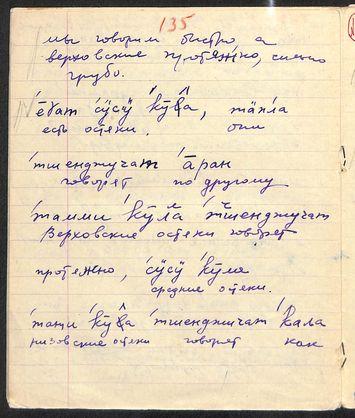 135
мы говорим быстро а
верховские протяжно, сильно
грубо.
´ēӷат ´сӱсӱ ´кӯла, тäпла
есть остяки. они
´тшенджучат ´āран
говорят по другому
´тамми ´кӯла ´тшенджучат
Верховские остяки говорят
протяжно, ´сӱсӱ ´кӯла
средние остяки.
´таӈи ´кӯла ´тшенджичат ´кала
низовские остяки говорят как